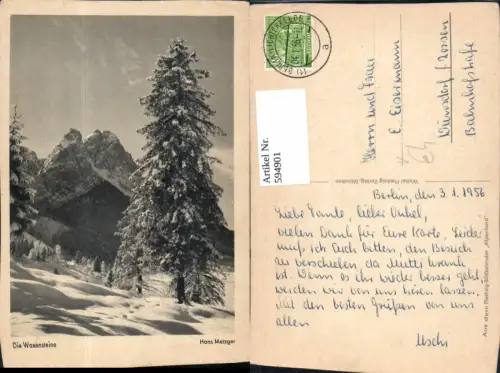 Die Waxensteine
Hans Metzger
Artikel Nr.
594901
a
Herrn und Frau
E. Eisermann
Wünsdorf / Zossen
Bahnhofstraße
Berlin, den 3.1.1956
Liebe Tante, lieber Onkel,
vielen Dank für Eure Karte. Leider
muß ich Euch bitten, den Besuch
zu verschieben, da Mutti krank
ist. Wenn es ihr wieder besser geht,
werden wir von uns hören lassen.
Mit den besten Grüßen von uns
allen
Uschi